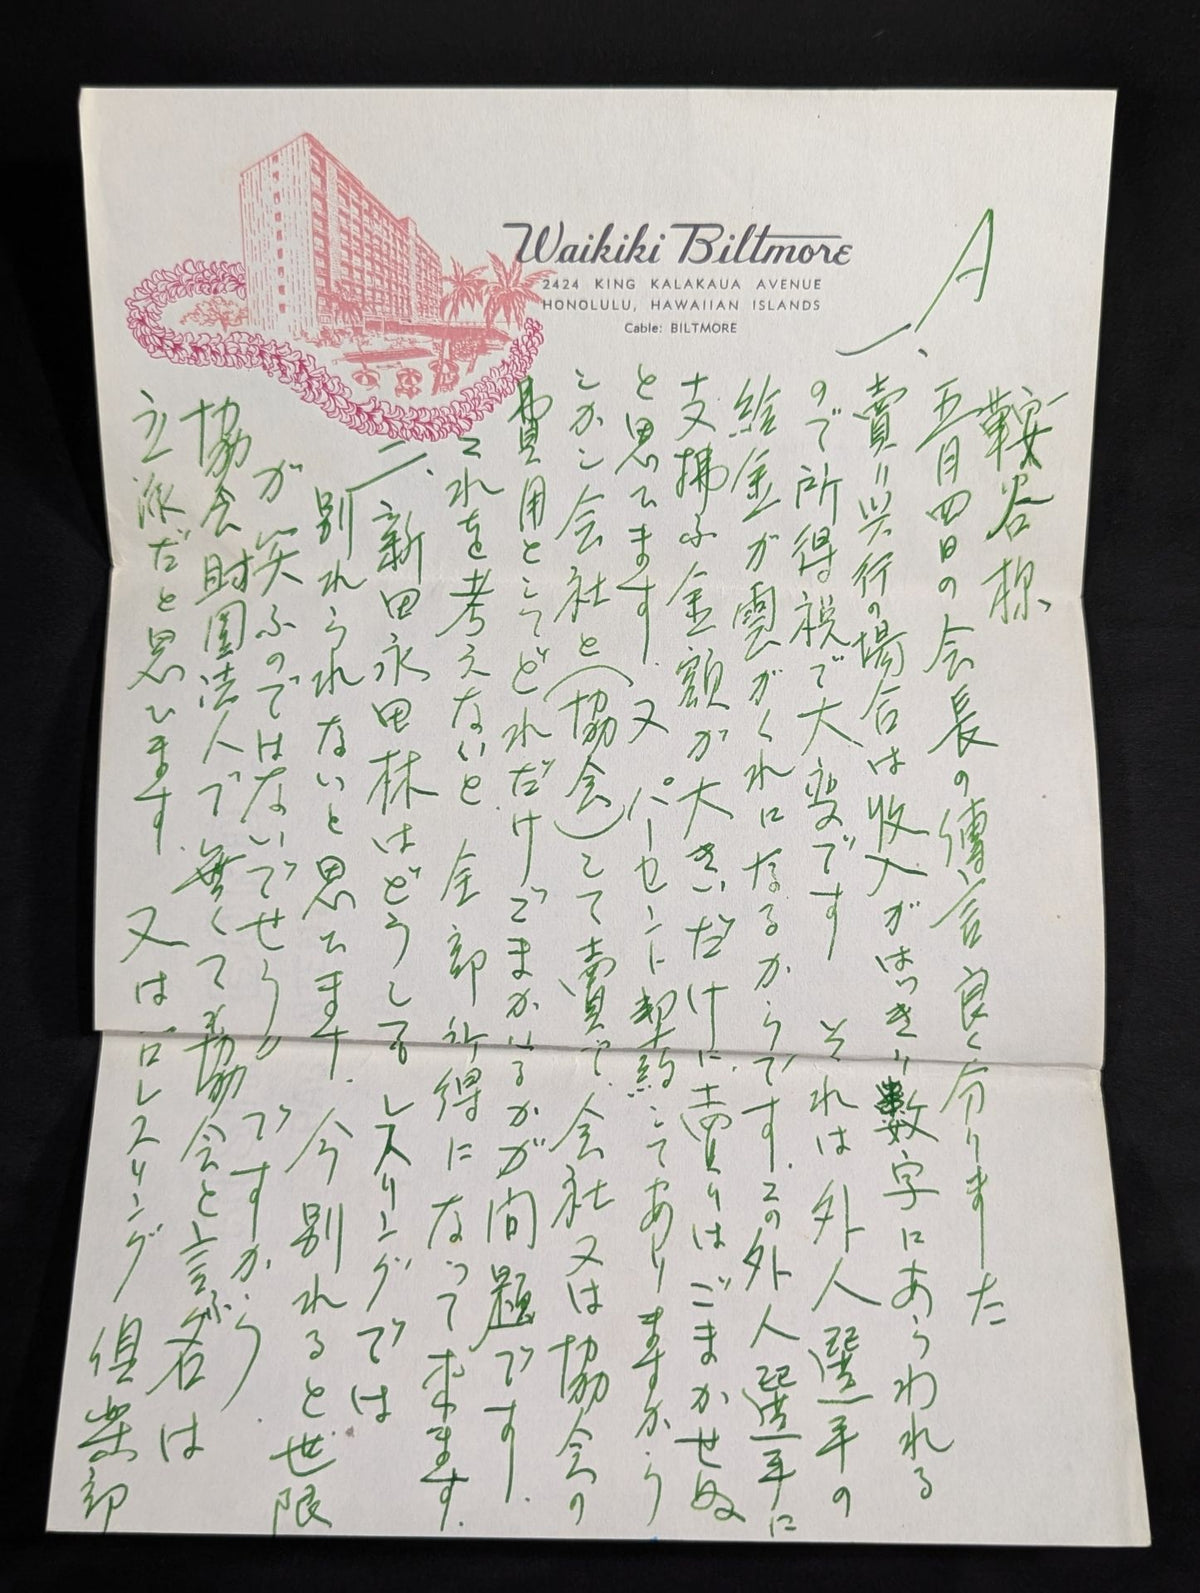 Waikiki Biltmore
2424 KING KALAKAUA AVENUE
HONOLULU, HAWAIIAN ISLANDS
Cable: BILTMORE
A
鞍谷様
一、五月四日の会長の傳言良く分りました
賣り興行の場合は收入がはっきり数字にあらわれる
ので所得税で大変です それは外人選手の
給金が雲がくれになるからです.この外人選手に
支拂ふ金額が大きいだけに賣りはごまかせぬ
と思ひます.又パーセントに契約してありますから
しかし会社と(協会)して賣で、会社又は協会の
費用としてどれだけごまかせるかが問題です.
これを考えないと 全部所得になって来ます.
二、新田永田林はどうしてもレスリングでは
別れられないと思ひます.今別れると世限
が笑ふのではないでせうか ですから.
協会財團法人で無くても協会と言ふ名は
立派だと思ひます. 又はプロレスリング倶楽部